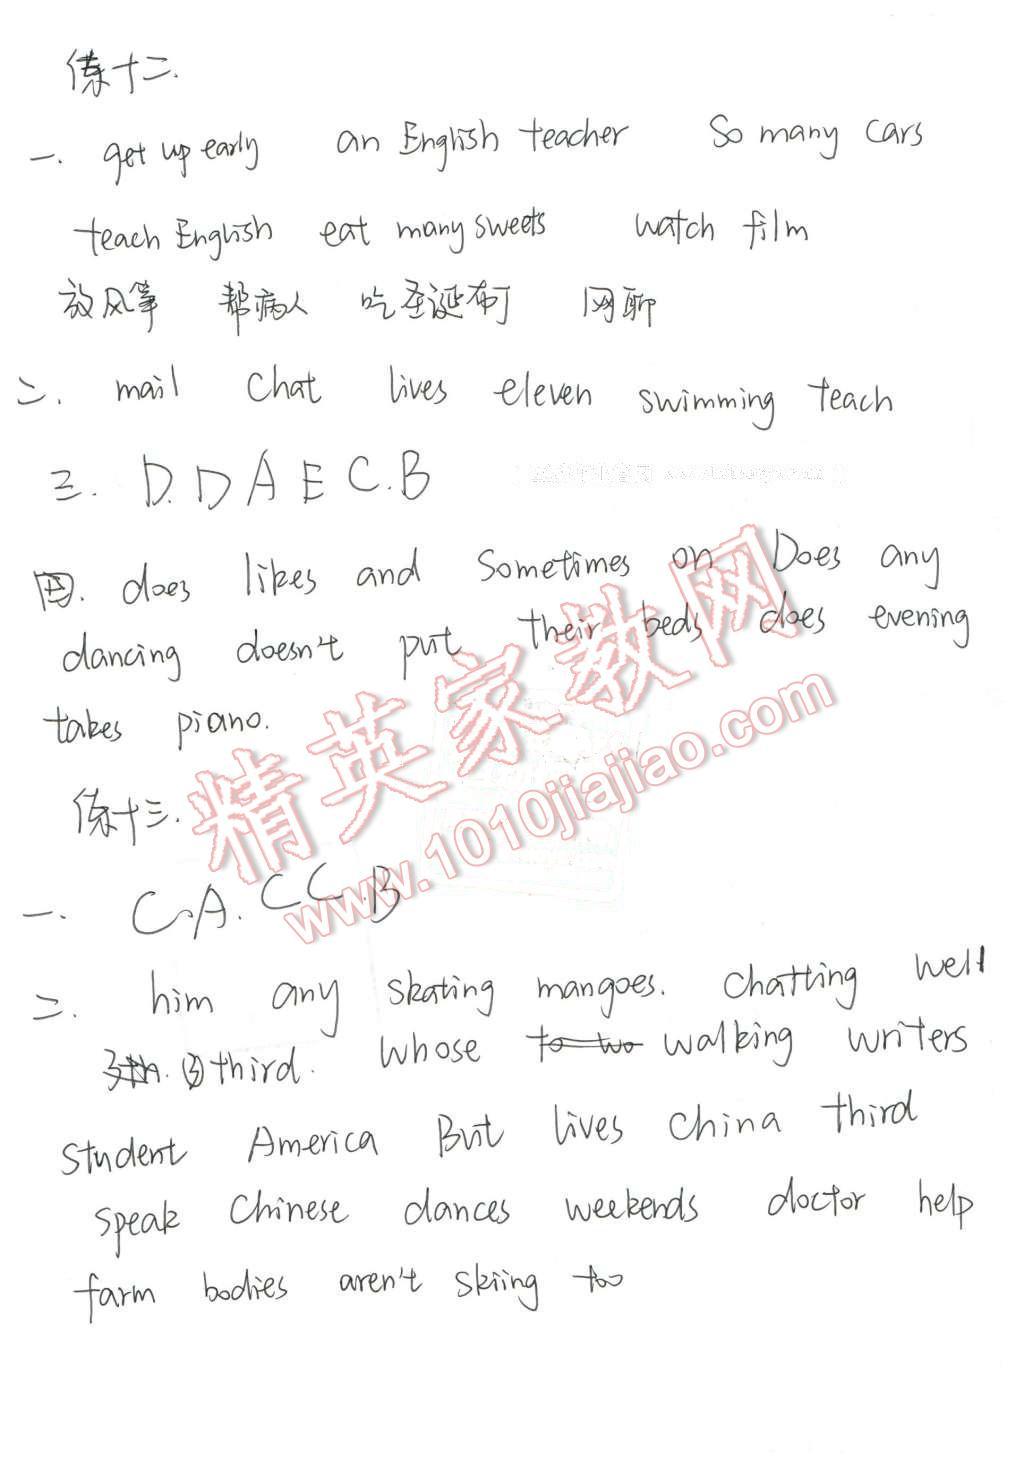 练十二.
一. get up early an English teacher So many cars
teach English eat many sweets watch film
放风筝 帮病人 吃圣诞布丁 网聊
二. mail chat lives eleven swimming teach
三. D. D A E C. B
四. does likes and Sometimes on Does any
dancing doesn't put their beds does evening
takes piano.
练十三.
一. C. A. C C B
二. him any skating mangoes. chatting well
③ third. whose to two walking writers
student America But lives China third
speak Chinese dances weekends doctor help
farm bodies aren't skiing too
精英家教网
www.1010jiajiao.com